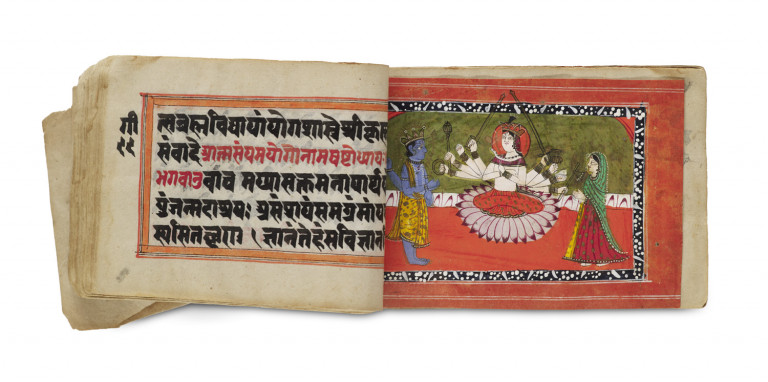 गी
त्सुब्रह्मविद्यायांयोगशास्त्रेश्रीकृ
संवादेआत्मसंयमयोगोनामषष्टोध्यायः
भगवानुवाच मय्यासक्तमनापार्थ
युंजन्मदाश्रयः असंशयंसमग्रंमां
स्यसितच्छृणु १ ज्ञानंतेहंसविज्ञान